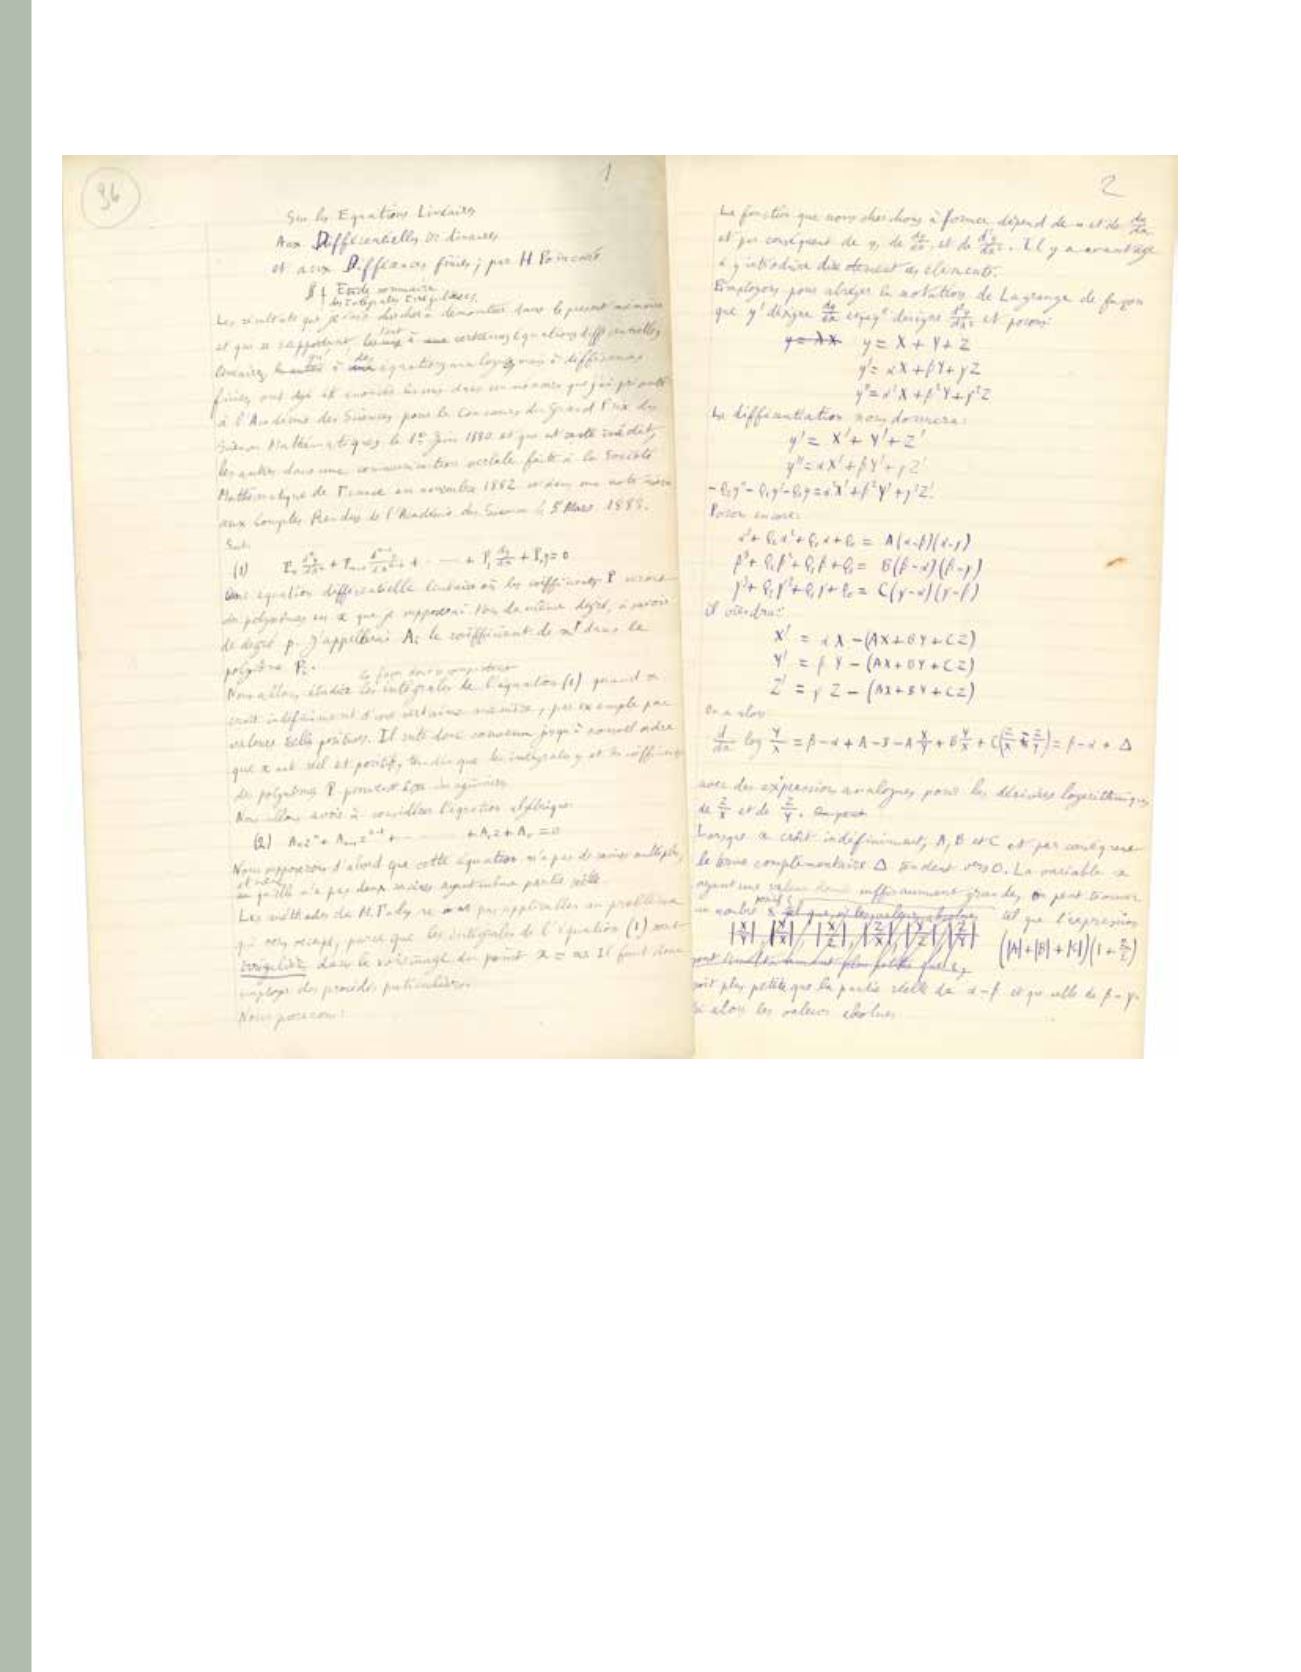 96
1
Sur les Equations Linéaires
Aux Différentielles ordinaires
et aux Différences finies; par H Poincaré
§ I Etude sommaire
des intégrales irrégulières.
Les résultats que je cherche à démontrer dans le présent mémoire
et qui se rapportent tant à certaines équations différentielles
linéaires qu'à des équations analogues mais à différences
finies, ont déjà été énoncés les uns dans un mémoire que j'ai présenté
à l'Académie des Sciences pour le Concours du Grand Prix des
Sciences Mathématiques le 1er Juin 1880 et qui est resté inédit,
les autres dans une communication verbale faite à la Société
Mathématique de France en novembre 1882 et dans une note insérée
aux Comptes Rendus de l'Académie des Sciences le 5 Mars 1883.
Soit:
(1) Pₙ dⁿy/dxⁿ + Pₙ₋₁ dⁿ⁻¹y/dxⁿ⁻¹ + ... + P₁ dy/dx + P₀y = 0
une équation différentielle linéaire où les coefficients P seront
des polynômes en x que je supposerai tous de même degré, à savoir
de degré p. J'appellerai Aᵢ le coefficient de xᵖ dans le
polynôme Pᵢ.
Nous allons étudier les intégrales de l'équation (1) quand x
croît indéfiniment d'une certaine manière, par exemple par
valeurs réelles positives. Il reste donc convenu jusqu'à nouvel ordre
que x est réel et positif, tandis que les intégrales y et les coefficients
des polynômes P peuvent être imaginaires.
Nous allons avoir à considérer l'équation algébrique:
(2) Aₙzⁿ + Aₙ₋₁zⁿ⁻¹ + ... + A₁z + A₀ = 0
Nous supposerons d'abord que cette équation n'a pas de racines multiples,
et même qu'elle n'a pas deux racines ayant même partie réelle.
Les méthodes de M. Fuchs ne sont pas applicables au problème
qui nous occupe, parce que les intégrales de l'équation (1) sont
irrégulières dans le voisinage du point x = ∞. Il faut donc
employer des procédés particuliers.
Nous poserons:
2
La fonction que nous cherchons à former dépend de u et de du/dx
et par conséquent de y, de dy/dx, et de d²y/dx². Il y a avantage
à y introduire directement ces éléments.
Employons pour abréger la notation de Lagrange de façon
que y' désigne dy/dx et que y'' désigne d²y/dx² et posons:
y = X + Y + Z
y' = αX + βY + γZ
y'' = α²X + β²Y + γ²Z
La différentiation nous donnera:
y' = X' + Y' + Z'
y'' = αX' + βY' + γZ'
-Q₂y'' - Q₁y' - Q₀y = α²X' + β²Y' + γ²Z'.
Posons encore:
α³ + Q₂α² + Q₁α + Q₀ = A(α-β)(α-γ)
β³ + Q₂β² + Q₁β + Q₀ = B(β-α)(β-γ)
γ³ + Q₂γ² + Q₁γ + Q₀ = C(γ-α)(γ-β)
il viendra:
X' = αX - (AX + BY + CZ)
Y' = βY - (AX + BY + CZ)
Z' = γZ - (AX + BY + CZ)
On a alors
d/dx log Y/X = β - α + A - B - A X/Y + B Y/X + C(Z/X - Z/Y) = β - α + Δ
avec des expressions analogues pour les dérivées logarithmiques
de Z/X et de Z/Y.
Lorsque x croît indéfiniment, A, B et C, et par conséquent
le terme complémentaire Δ tendent vers 0. La variable x
ayant une valeur suffisamment grande, on peut trouver
un nombre positif tel que l'expression
|X/Y|, |Y/X|, |X/Z|, |Z/X|, |Y/Z|, |Z/Y| (|A|+|B|+|C|)(1+
soit plus petite que la partie réelle de α-β et que celle de β-γ.
Si alors les valeurs absolues